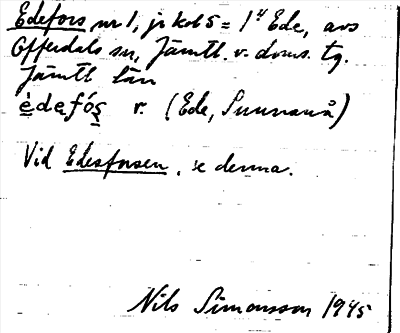 Edefors nr 1, jr kol 5 = 1 Ede, avs
Offerdals sn, Jämtl. v. doms. tg.
Jämtl län
èdefós v. (Ede, Sunnanå)
Vid Edesforsen, se denna.
Nils Simonsson 1945